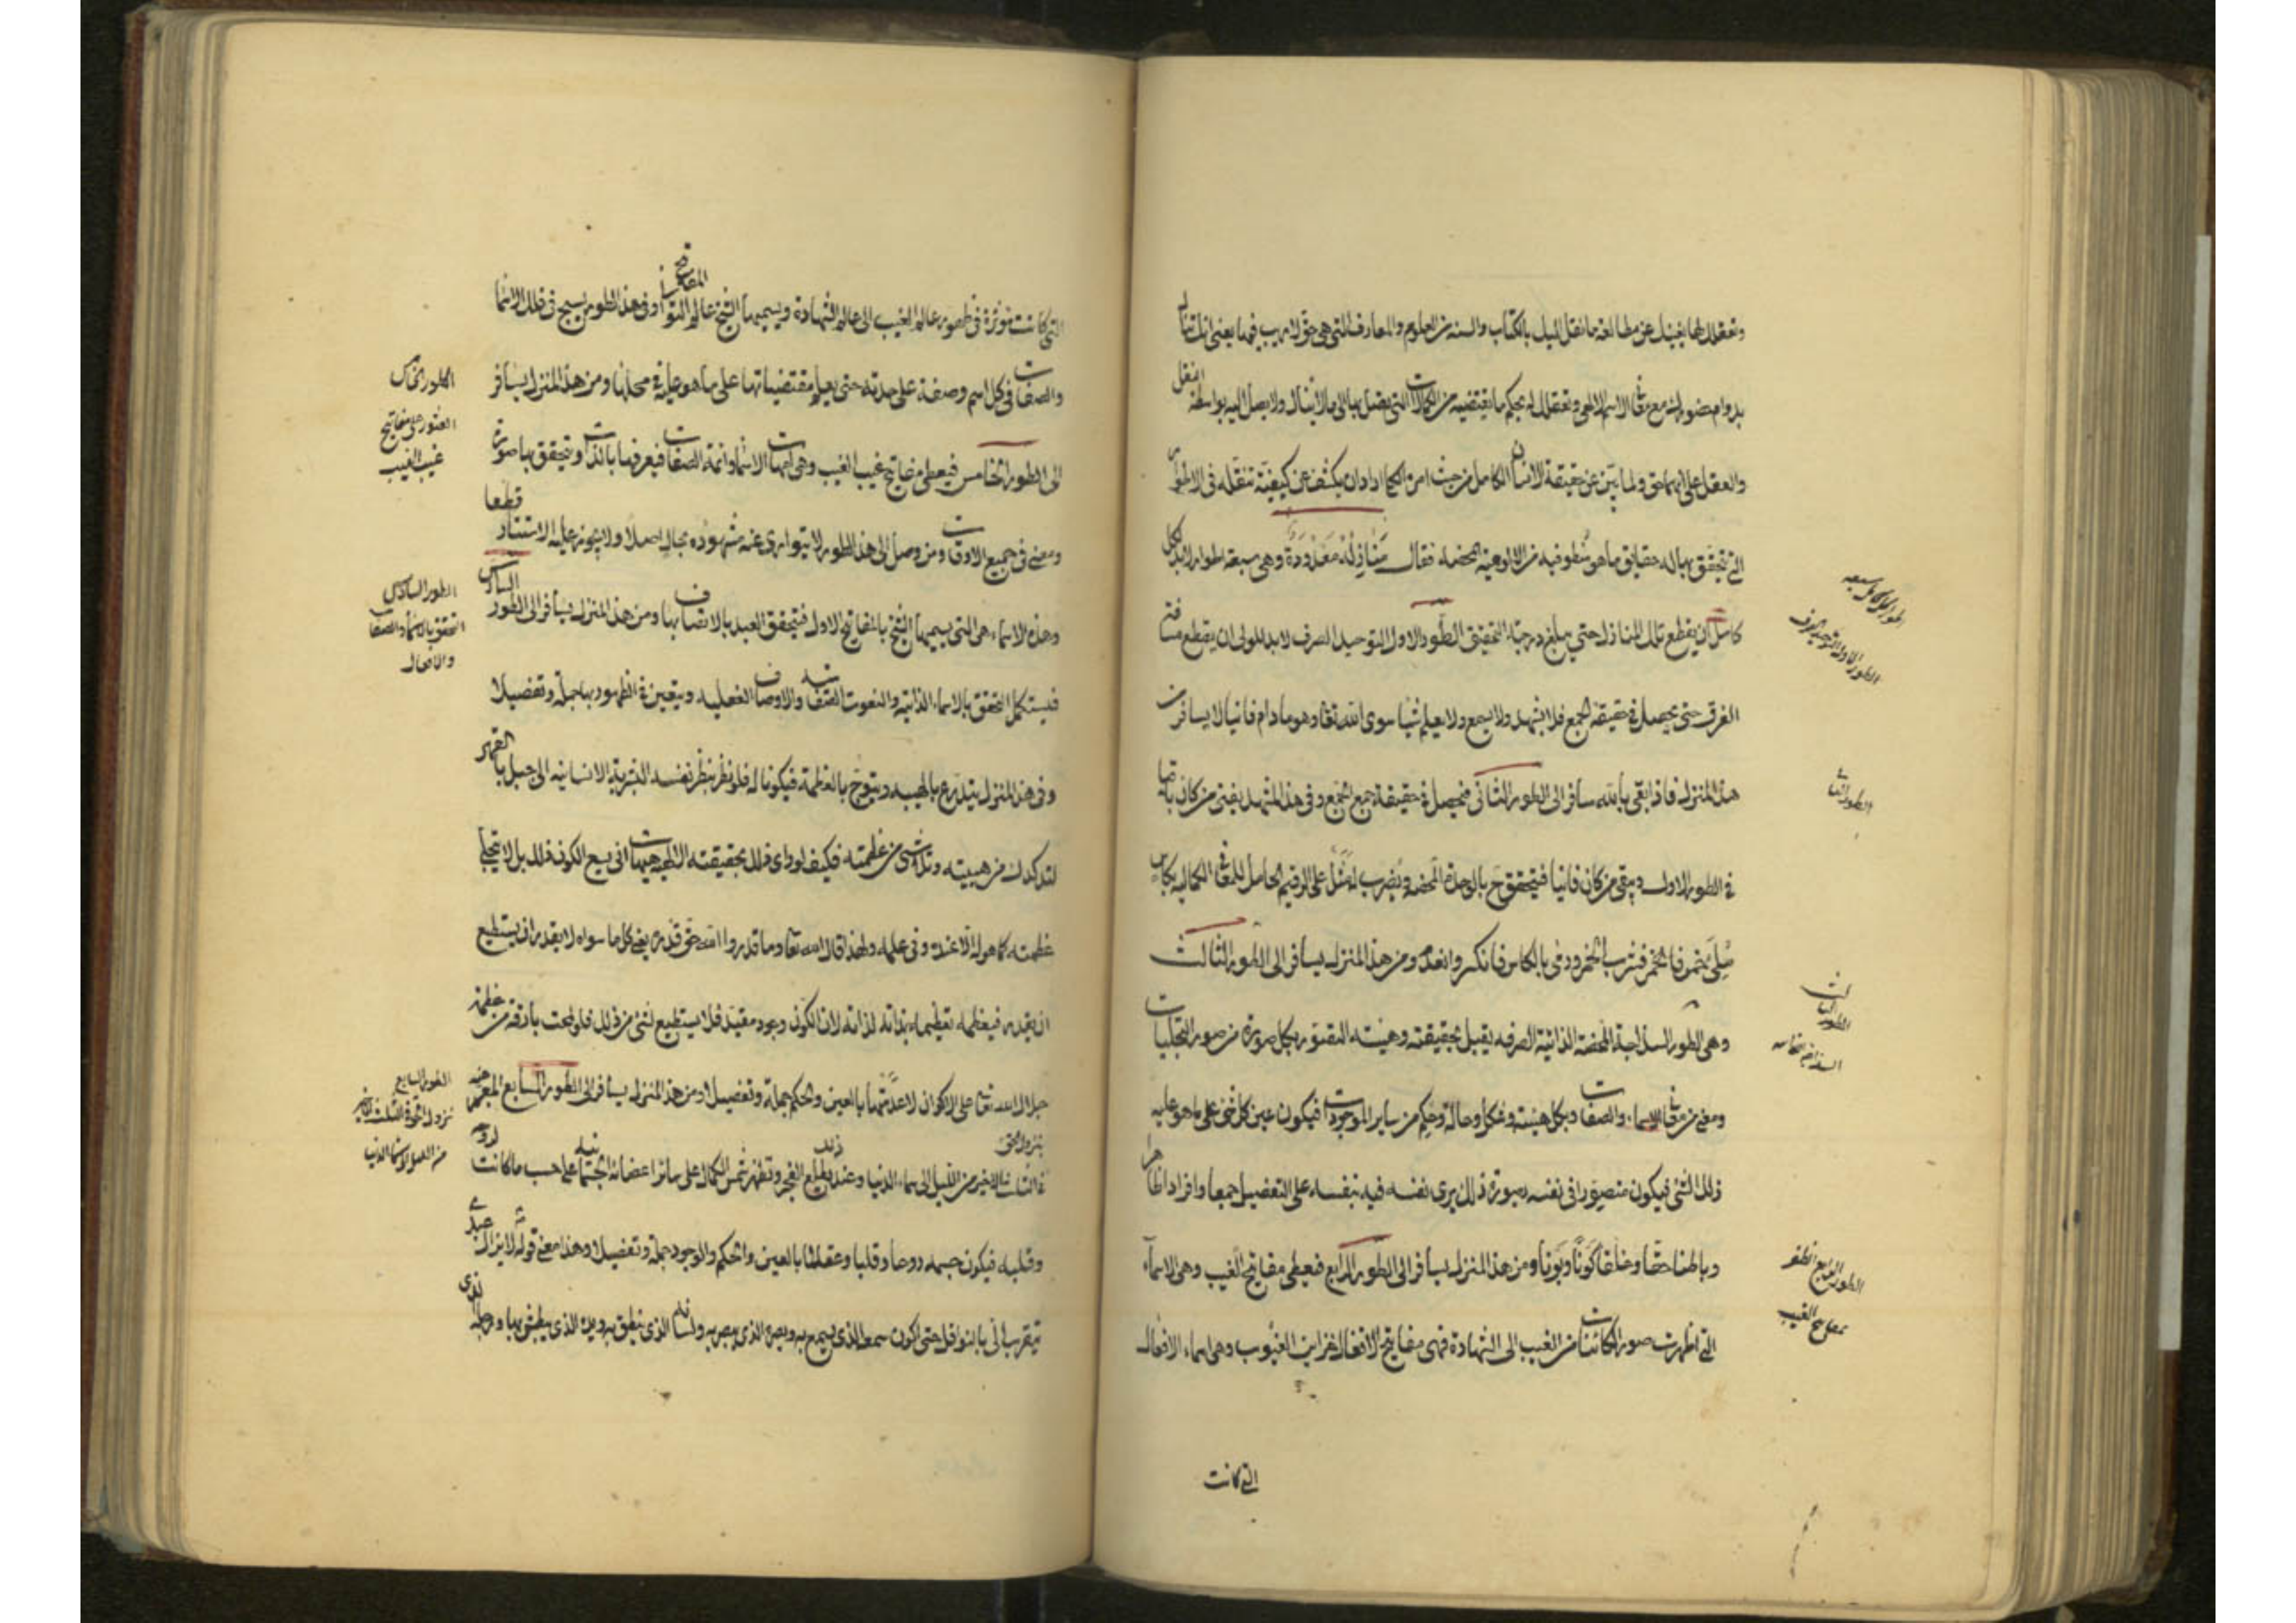 وتعقلك لها يغنيك عن مطالعة ما نقل اليك بالكتاب والسنه من العلوم والمعارف التى هى حق لا ريب فيها يعنى انك تنال
بدوام حضورك مع معانى الاسم الالهى وتعقلك له بحكم ما يقتضيه من الكمالات التى يصل بها الى ما لا ينال ولا يصل اليه بواسطة النقل
والعقل على انهما حق ولما بين عن حقيقة الانسان الكامل من حيث امره الحكم اراد ان يكشف عن كيفية تنقله فى الاطوار
التى يتحقق بها له حقايق ما هو منطو فيه من الالوهية المحضه فقال منازله معدودة وهى سبعة اطوار لابد لكل
كامل ان يقطع تلك المنازل حتى يبلغ درجة التحقيق الطور الاول التوحيد الصرف لابد للولى ان يقطع مسافة
الفرق حتى يحصل فى حقيقة الجمع فلا يشهد ولا يسمع ولا يعلم شيا سوى الله تعا وهو ما دام فانيا لا يسافر من
هذا المنزل فاذا بقى بالله سافر الى الطور الثانى فيحصل فى حقيقة جمع الجمع وفى هذا المشهد يفنى من كان باقيا
فى الطور الاول ويبقى من كان فانيا فيتحقق ح بالوحدة المحضه ويضرب له مثل على الرقيم الحامل للمعانى الكماليه بكاس
ملئ بخمر فالخمر فشرب الخمر ورمى بالكاس فانكسر وانعدم ومن هذا المنزل يسافر الى الطور الثالث
وهى الطور السذاجة المحضة الذاتية الصرفه يقبل بحقيقته وهيئته التصور بكل صورة من صور التجليات
ومعنى من معانى الاسماء والصفات وبكل هيئة وشكل وحالة وحكم من ساير الموجودات فيكون عين كل شئ على ما هو عليه
ذلك الشئ فيكون متصورا فى نفسه بصورة ذلك يرى نفسه فيه بنفسه على التفصيل جمعا وافرادا ظاهرا
وباطنا حقا وخلقا كونا وبونا ومن هذا المنزل يسافر الى الطور الرابع فيعطى مفاتيح الغيب وهى الاسماء
التى اظهرت صور الكائنات من الغيب الى الشهادة فهى مفاتيح الافعال لخزاين الغيوب وهى اسماء الافعال
التى كانت
الطور الثانى
الطور الثالث
السذاجة
الطور الرابع
مفاتيح الغيب
التى كانت مؤثرة فى ظهور عالم الغيب الى عالم الشهادة ويسميها الشيخ عالم المفاتيح الثوانى وفى هذا الطور يسبح فى فلك الاسما
والصفات فى كل اسم وصفة على حدته حتى يعلم مقتضياتها على ما هو عليه محلها ومن هذا المنزل يسافر
الى الطور الخامس فيعطى مفاتيح غيب الغيب وهى امهات الاسما وائمة الصفات فيعرفها بالذات ويتحقق بها صورة
ومعنى فى جميع الاوقات ومن وصل الى هذا الطور لا يتوارى عنه مشهوده بحال اصلا ولا يجوز عليه الاستتار قطعا
وهذه الاسماء هى التى يسميها الشيخ بالمفاتيح الاول فيتحقق العبد بالاتصاف بها ومن هذا المنزل يسافر الى الطور السادس
فيستكمل التحقق بالاسماء الذاتية والنعوت الصفاتيه والاوصاف الفعليه ويتعين فى الظهور بها جملة وتفصيلا
وفى هذا المنزل يتدرع بالهيبه ويتوج بالعظمة فيكون له فلو نظر بنظر نفسه البشرية الانسانيه الى جبل بالقهر
لتدكدك من هيبته وتلاشى من عظمته فكيف لو راى ذلك بحقيقته الالهيه هيهات انى يسع الكون ذلك بل لا تتجلى
عظمته كما هو له الا عنده وفى علمه ولهذا قال الله تعا وما قدروا الله حق قدره يعنى كل ما سواه لا يقدر ان يستطيع
ان يقدره فيعظمه تعظيما بذاته لذاته لان الكون وجود مقيد فلا يستطيع لشئ من ذلك فلو لمحت بارقة من عظمة
جلال الله تعا على الاكوان لاعدمتها بالعين والحكم جملة وتفصيلا ومن هذا المنزل يسافر الى الطور السابع المعبر عنه
بنزول الحق
فى الثلث الاخير من الليل الى سماء الدنيا وعنده يطلع الفجر وتظهر شمس الكمال على سائر اعضائه الجثمانيه على حسب ما كانت لروحه
وقلبه فيكون جسمه روحا وقلبا وعقلا بالعين والحكم والوجود جملة وتفصيلا وهذا معنى قوله لا يزال عبدى
يتقرب الى بالنوافل حتى اكون سمعه الذى يسمع به وبصره الذى يبصر به ولسانه الذى ينطق به ويده الذى يبطش بها ورجله الذى
الطور الخامس
العثور على مفاتيح
غيب الغيب
الطور السادس
التحقق بالاسما والصفات
والافعال
الطور السابع